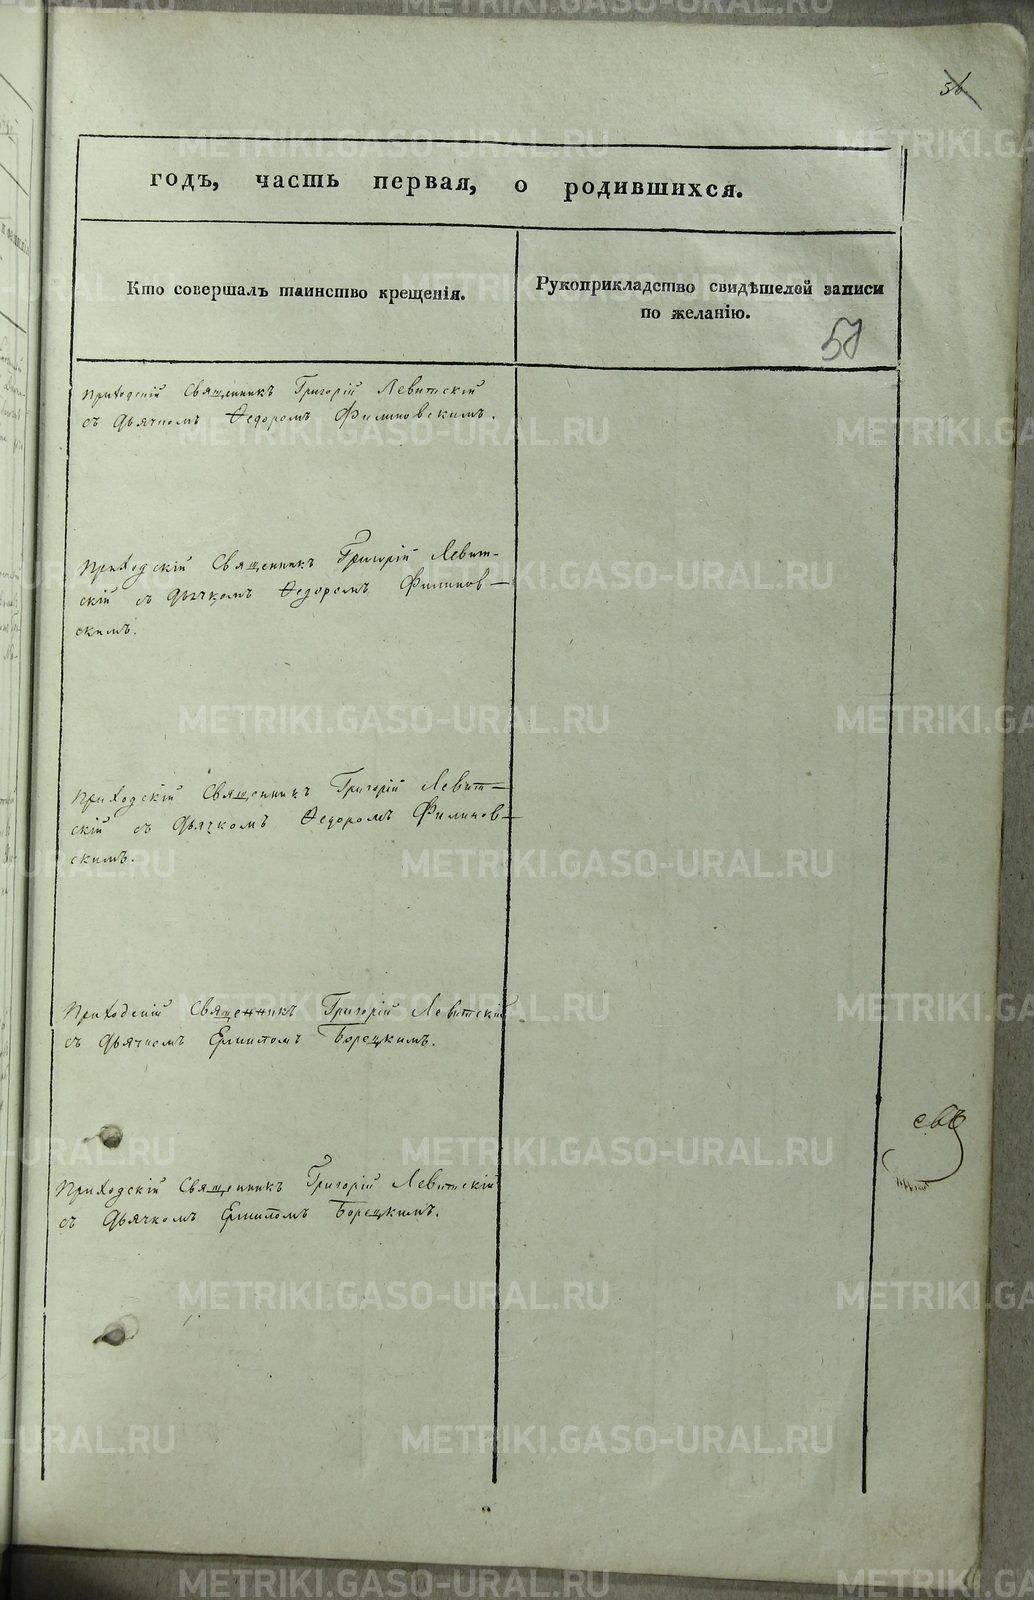 56
годъ, часть первая, о родившихся.
Кто совершалъ таинство крещенія.
Рукоприкладство свидѣтелей записи
по желанію.
Приходскій Священникъ Григорій Левитскій
съ Дьячкомъ Ѳедоромъ Филиповскимъ.
Приходскій Священникъ Григорій Левит-
скій съ Дьячкомъ Ѳедоромъ Филипов-
скимъ.
Приходскій Священникъ Григорій Левит-
скій съ Дьячкомъ Ѳедоромъ Филипов-
скимъ.
Приходскій Священникъ Григорій Левитскій
съ Дьячкомъ Ермиломъ Борецкимъ.
Приходскій Священникъ Григорій Левитскій
съ Дьячкомъ Ермиломъ Борецкимъ.
METRIKI.GASO-URAL.RU